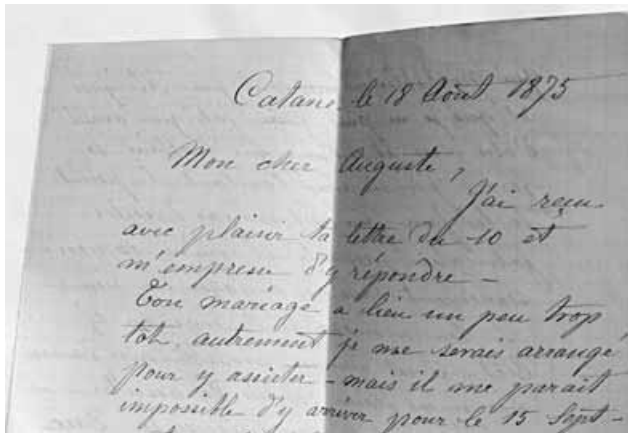 Catane le 18 Août 1875
Mon cher Auguste,
J'ai reçu
avec plaisir ta lettre du 10 et
m'empresse d'y répondre –
Ton mariage a lieu un peu trop
tot, autrement je me serais arrangé
pour y assister – mais il me parait
impossible d'y arriver pour le 15 Sept –